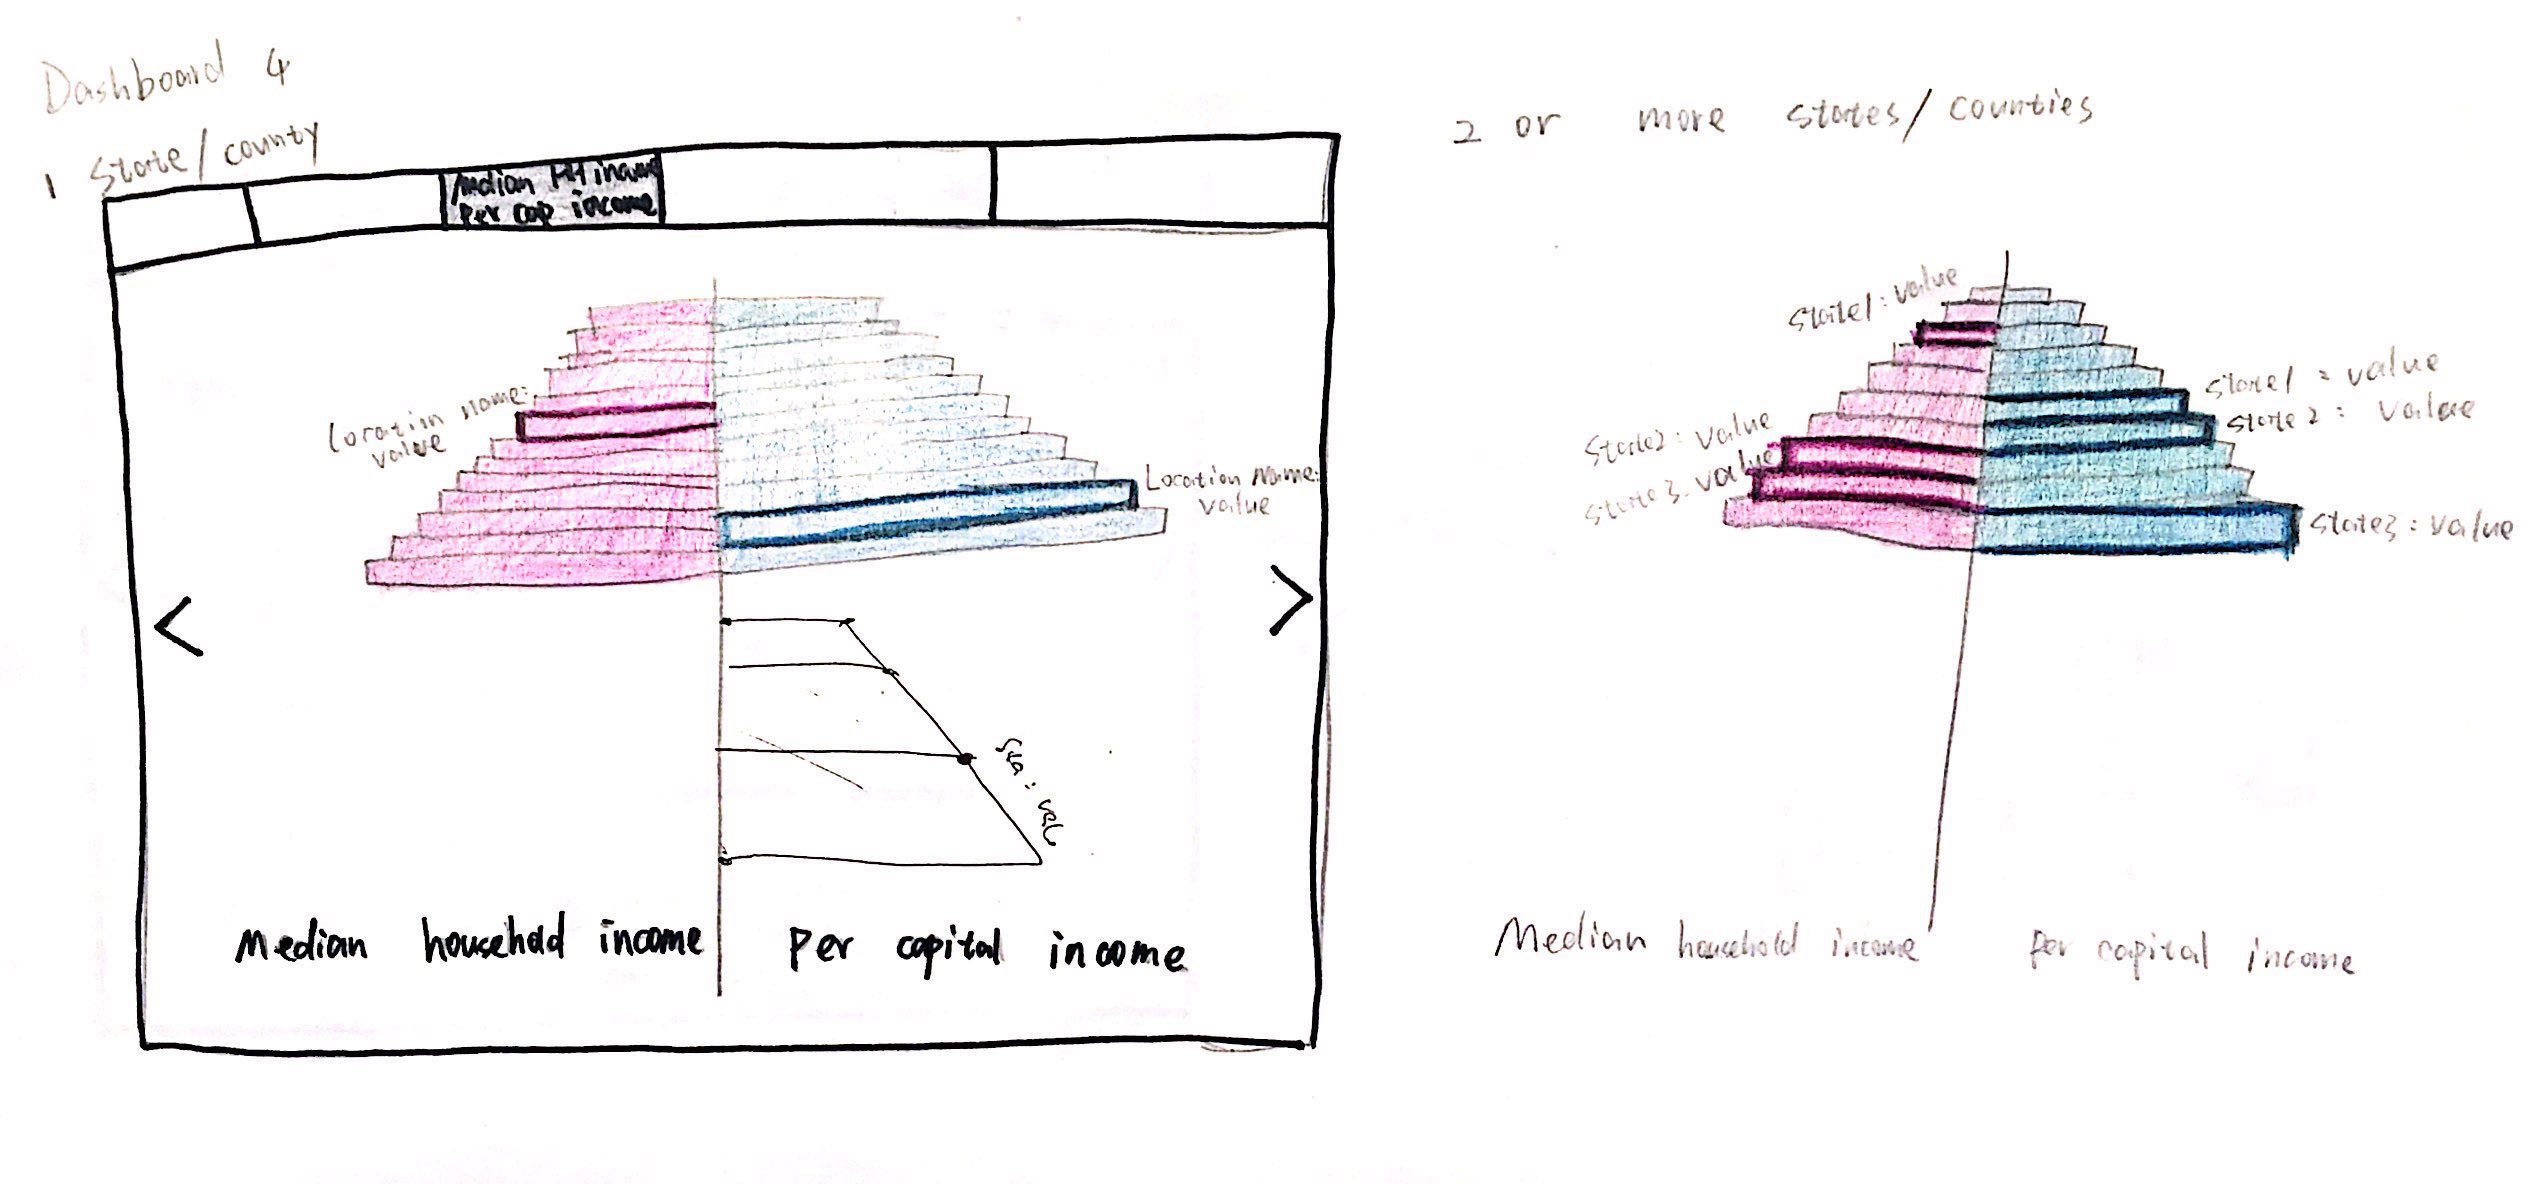 Dashboard 4
1 State/county
Median HH income
Per cap income
Location Name:
value
Location Name:
value
Sta: val
Median household income
Per capital income
2 or more states/counties
State1: value
State1: value
State2: value
State2: value
State3: value
State3: value
Median household income
Per capital income